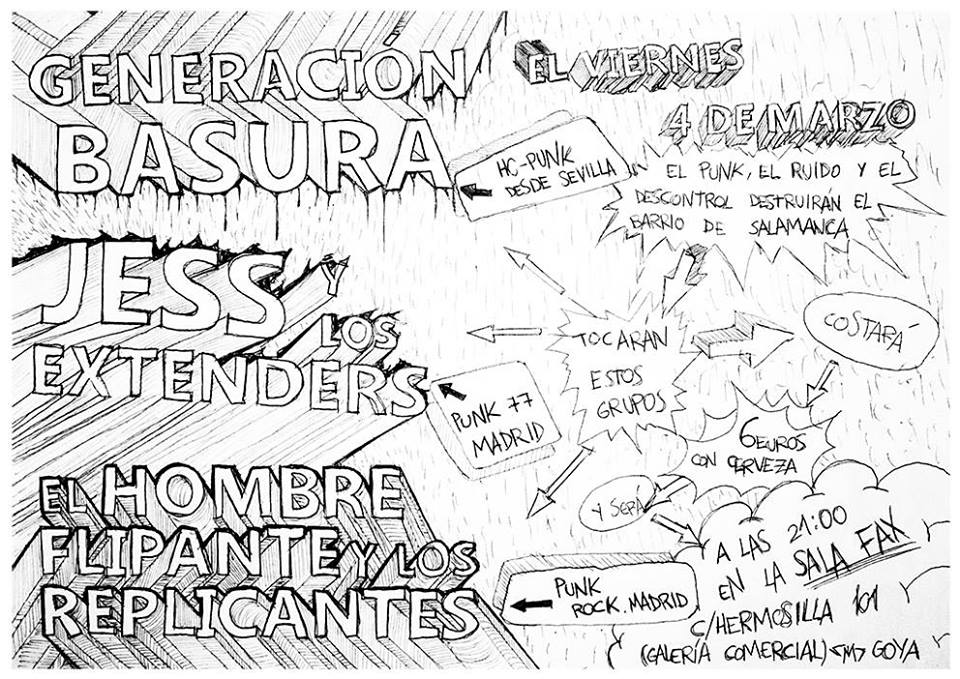 GENERACIÓN
BASURA
HC-PUNK
DESDE SEVILLA
JESS Y
LOS
EXTENDERS
PUNK 77
MADRID
EL HOMBRE
FLIPANTE Y LOS
REPLICANTES
PUNK
ROCK. MADRID
EL VIERNES
4 DE MARZO
EL PUNK, EL RUIDO Y EL
DESCONTROL DESTRUIRÁN EL
BARRIO DE SALAMANCA
TOCARAN
ESTOS
GRUPOS
COSTARÁ
6 EUROS
CON CERVEZA
Y SERÁ
A LAS 21:00
EN LA SALA FAX
C/HERMOSILLA 101
(GALERÍA COMERCIAL) <M> GOYA